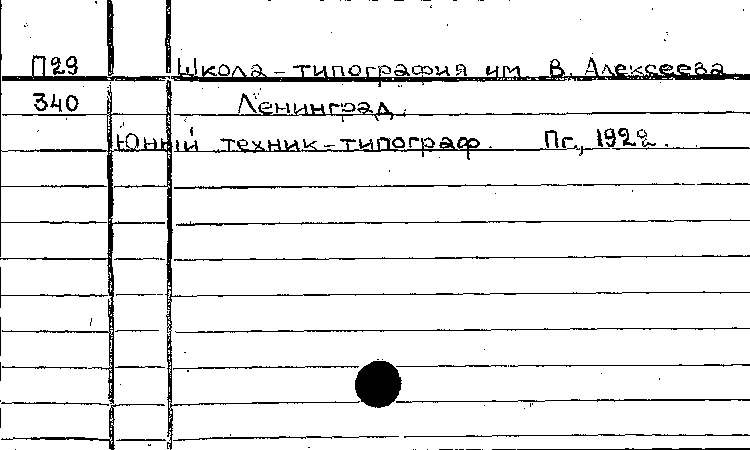 П29 Школа-типография им. В. Алексеева
340 Ленинград.
Юный техник-типограф. Пг., 1922.